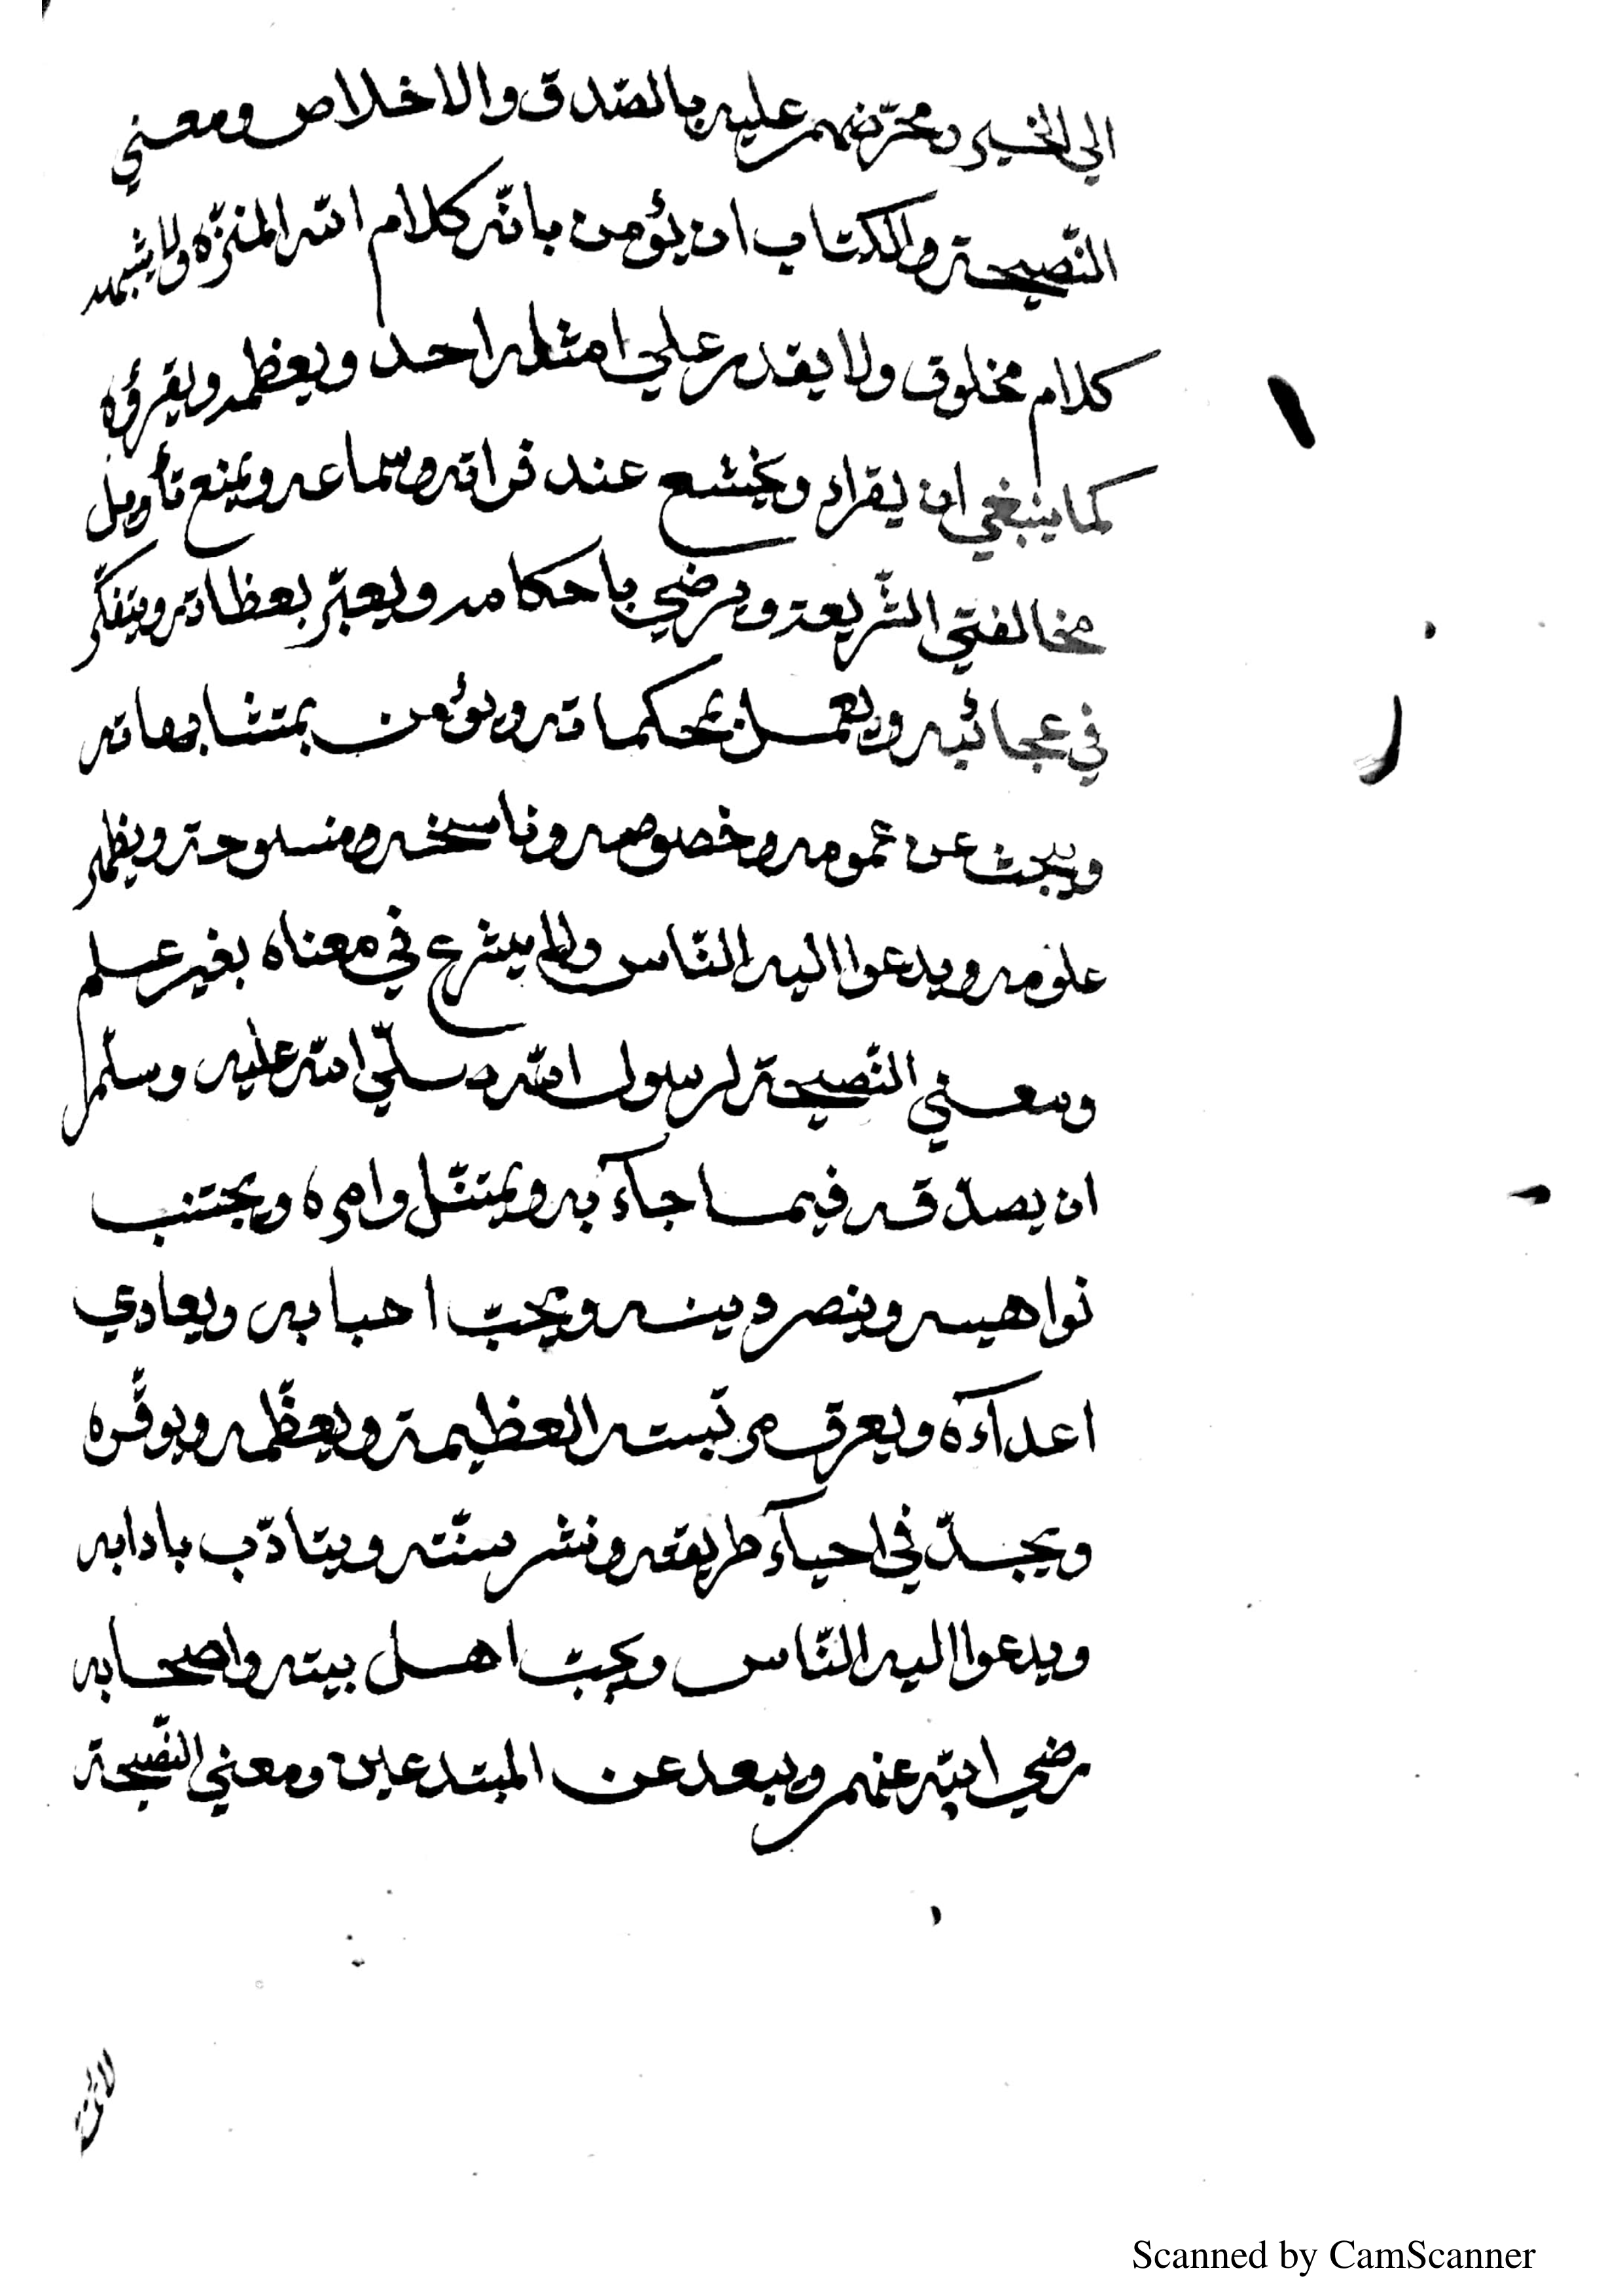 الي الخير ويحرّضهم عليه بالصّدق والاخلاص ومعني
النّصيحة للكتاب ان يؤمن بانّه كلام الله المنزّه لا يشبهه
كلام مخلوق ولا يقدر علي امثله احد ويعظمه ويقرؤه
كما ينبغي ان يقراء ويخشع عند قراته وسماعه ويمنع تأويل
مخالفتي الشّريعة ويرضي باحكامه ويعبّر بعظاته ويتفكّر
في عجائبه ويعمل بمحكماته ويؤمن بمتشابهاته
ويبحث عن عمومه وخصوصه وناسخه ومنسوخه ويظهر
علومه ويدعوا اليه النّاس ولا يشرع في معناه بغير علم
ومعني النّصيحة لرسول الله صلّي الله عليه وسلّم
ان يصدّقه فيما جآء به ويمتثل اوامره ويجتنب
نواهيه وينصر دينه ويحبّ احبابه ويعادي
اعدآءه ويعرف مرتبته العظيمة ويعظّمه ويوقّره
ويجدّ في احيآء طريقه ونشر سنّته ويتادّب بادابه
ويدعوا اليه النّاس ويحبّ اهل بيته واصحابه
رضي الله عنهم ويبعد عن المبتدعين ومعني النّصيحة
Scanned by CamScanner